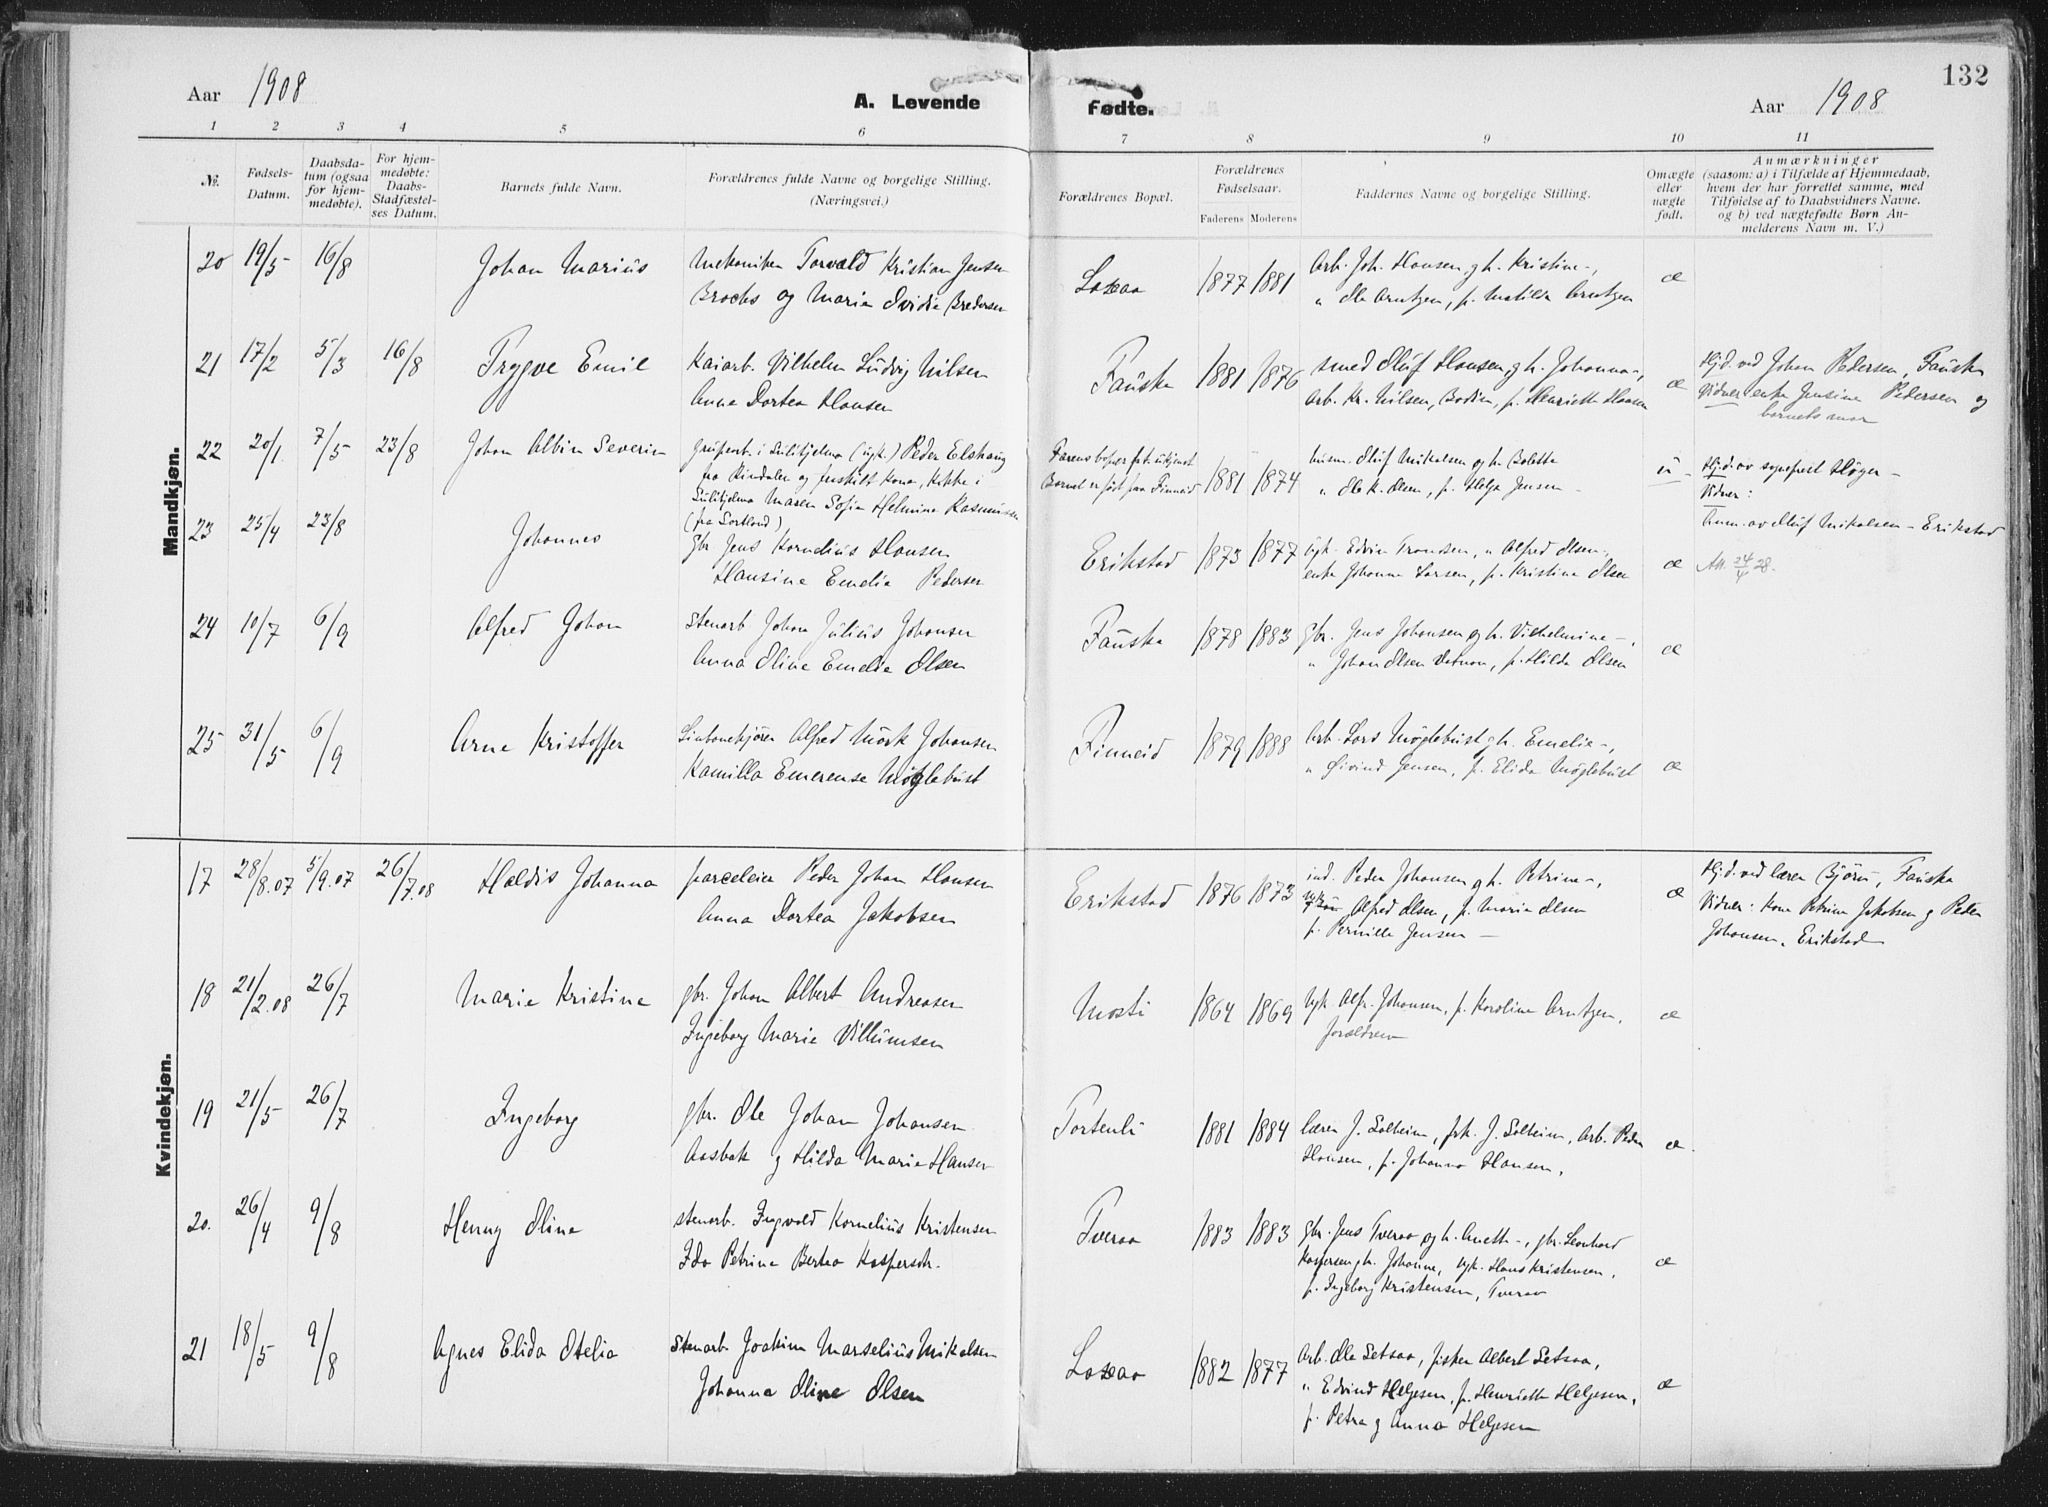 132
Aar 1908
A. Levende Fødte.
Aar 1908
1 2 3 4 5 6 7 8 9 10 11
№.
Fødsels-Datum.
Daabsda-tum (ogsaa for hjem-medøbte).
For hjem-medøbte: Daabs-Stadfæstel-ses Datum.
Barnets fulde Navn.
Forældrenes fulde Navne og borgelige Stilling. (Næringsvei.)
Forældrenes Bopæl.
Forældrenes Fødselsaar.
Faderens Moderens
Faddernes Navne og borgelige Stilling.
Omægte eller uægte født.
Anmærkninger
(saasom: a) i Tilfælde af Hjemmedaab,
hvem der har forrettet samme, med
Tilføielse af to Daabsvidners Navne.
og b) ved uægtefødte Børn An-
melderens Navn m. V.)
Mandkjøn.
20 19/5 16/8 Johan Marius
Mekaniker Torvald Kristian Jensen
Brochs og Marie Ovidie Bredesen
Laxaa 1877 1881
Arb. Joh. Hansen g h. Kristine -,
" Ole Arntzen, p. Matilda Arntzen
æ
21 17/2 5/3 16/8 Trygve Emil
Kaiarb. Vilhelm Ludvig Nilsen
Anna Dortea Hansen
Fauske 1881 1876
Smed Oluf Hansen g h. Johanna -,
Arb. Kr. Nilsen, Bodin, p. Henriette Hansen
æ
Hjd. ved Johan Pedersen, Fauske
Vidner enke Jensine Pedersen og
barnets mor
22 20/1. 7/5 23/8 Johan Albin Severin
Grubearb. i Sulitjelma (ugk.) Peder Elshaug
fra Rindalen og fraskilt Kona, Kokke i
Sulitjelma Maren Sofie Helmine Rasmussen
(fra Sortland)
Farens bopæl ukjent
Barnet er født paa Finneid
1881 1874
husm. Oluf Mikalsen og h. Bolette
" Ole K. Olsen, p. Helga Jensen -
u -
Hjd. av sogneprest Høyer -
Vidner:
Anm. av Oluf Mikalsen - Erikstad
23 25/4 23/8 Johannes
Gbr. Jens Kornelius Hansen
Hansine Emelie Pedersen
Erikstad 1873 1877
Ugk. Edvin Transen, " Alfred Olsen,
enke Johanna Larsen, p. Kristine Olsen
æ
Att. 24/4 28.
24 10/7 6/9 Alfred Johan
Stenarb Johan Julius Johansen
Anna Oline Emelie Olsen
Fauske 1878 1883
Gbr. Jens Johansen og h. Vilhelmine -,
" Johan Olsen Vatnan, p. Hilda Olsen
æ
25 31/5 6/9 Arne Kristoffer
Alfred Mörk Johansen
Kamilla Emerense Möglebust
Finneid 1879 1888
Arb. Lars Möglebust g h. Emelie -,
" Øivind Jensen, p. Elida Möglebust
æ
Kvindekjøn.
17 28/8.07 5/9.07 26/7.08 Haldis Johanna
parceleier Peder Johan Hansen
Anna Dortea Jakobsen
Erikstad 1876 1873
ind. Peder Johansen g h. Petrine -,
Alfred Olsen, p. Marie Olsen
p. Pernille Jensen -
æ
Hjd. ved lærer Björu, Fauske
Vidner: Kone Petrine Jakobsen g Peder
Johansen, Erikstad
18 21/2.08 26/7 Marie Kristine
gbr. Johan Albert Andreasen
Ingeborg Marie Villumsen
Mosti 1864 1869
Ugk. Alfr. Johansen, p. Karoline Arntzen,
forældrene
æ
19 21/5 26/7 Ingeborg
gbr. Ole Johan Johansen
Aasbak g Hilda Marie Hansen
Tortenli 1881 1884
Lærer J. Solheim, frk. J. Solheim, Arb. Peder
Hansen, p. Johanna Hansen,
æ.
20. 26/4 9/8 Henny Oline
stenarb. Ingvald Kornelius Kristensen
Ida Petrine Bertea Kaspersdtr.
Tveraa 1883 1883
Gbr. Jens Tveraa og h. Anette -, gbr. Leonhard
Kaspersen g h. Johanne, ugk. Hans Kristensen,
p. Ingeborg Kristensen, Tveraa
æ
21 18/5 9/8 Agnes Elida Otelia
Stenarb Joakim Marselius Mikalsen
Johanna Oline Olsen
Laxaa 1882 1877
Arb. Ole Setsaa, fisker Albert Setsaa,
" Edvind Helgesen, p. Henriette Helgesen,
p. Petra g Anna Helgesen
æ